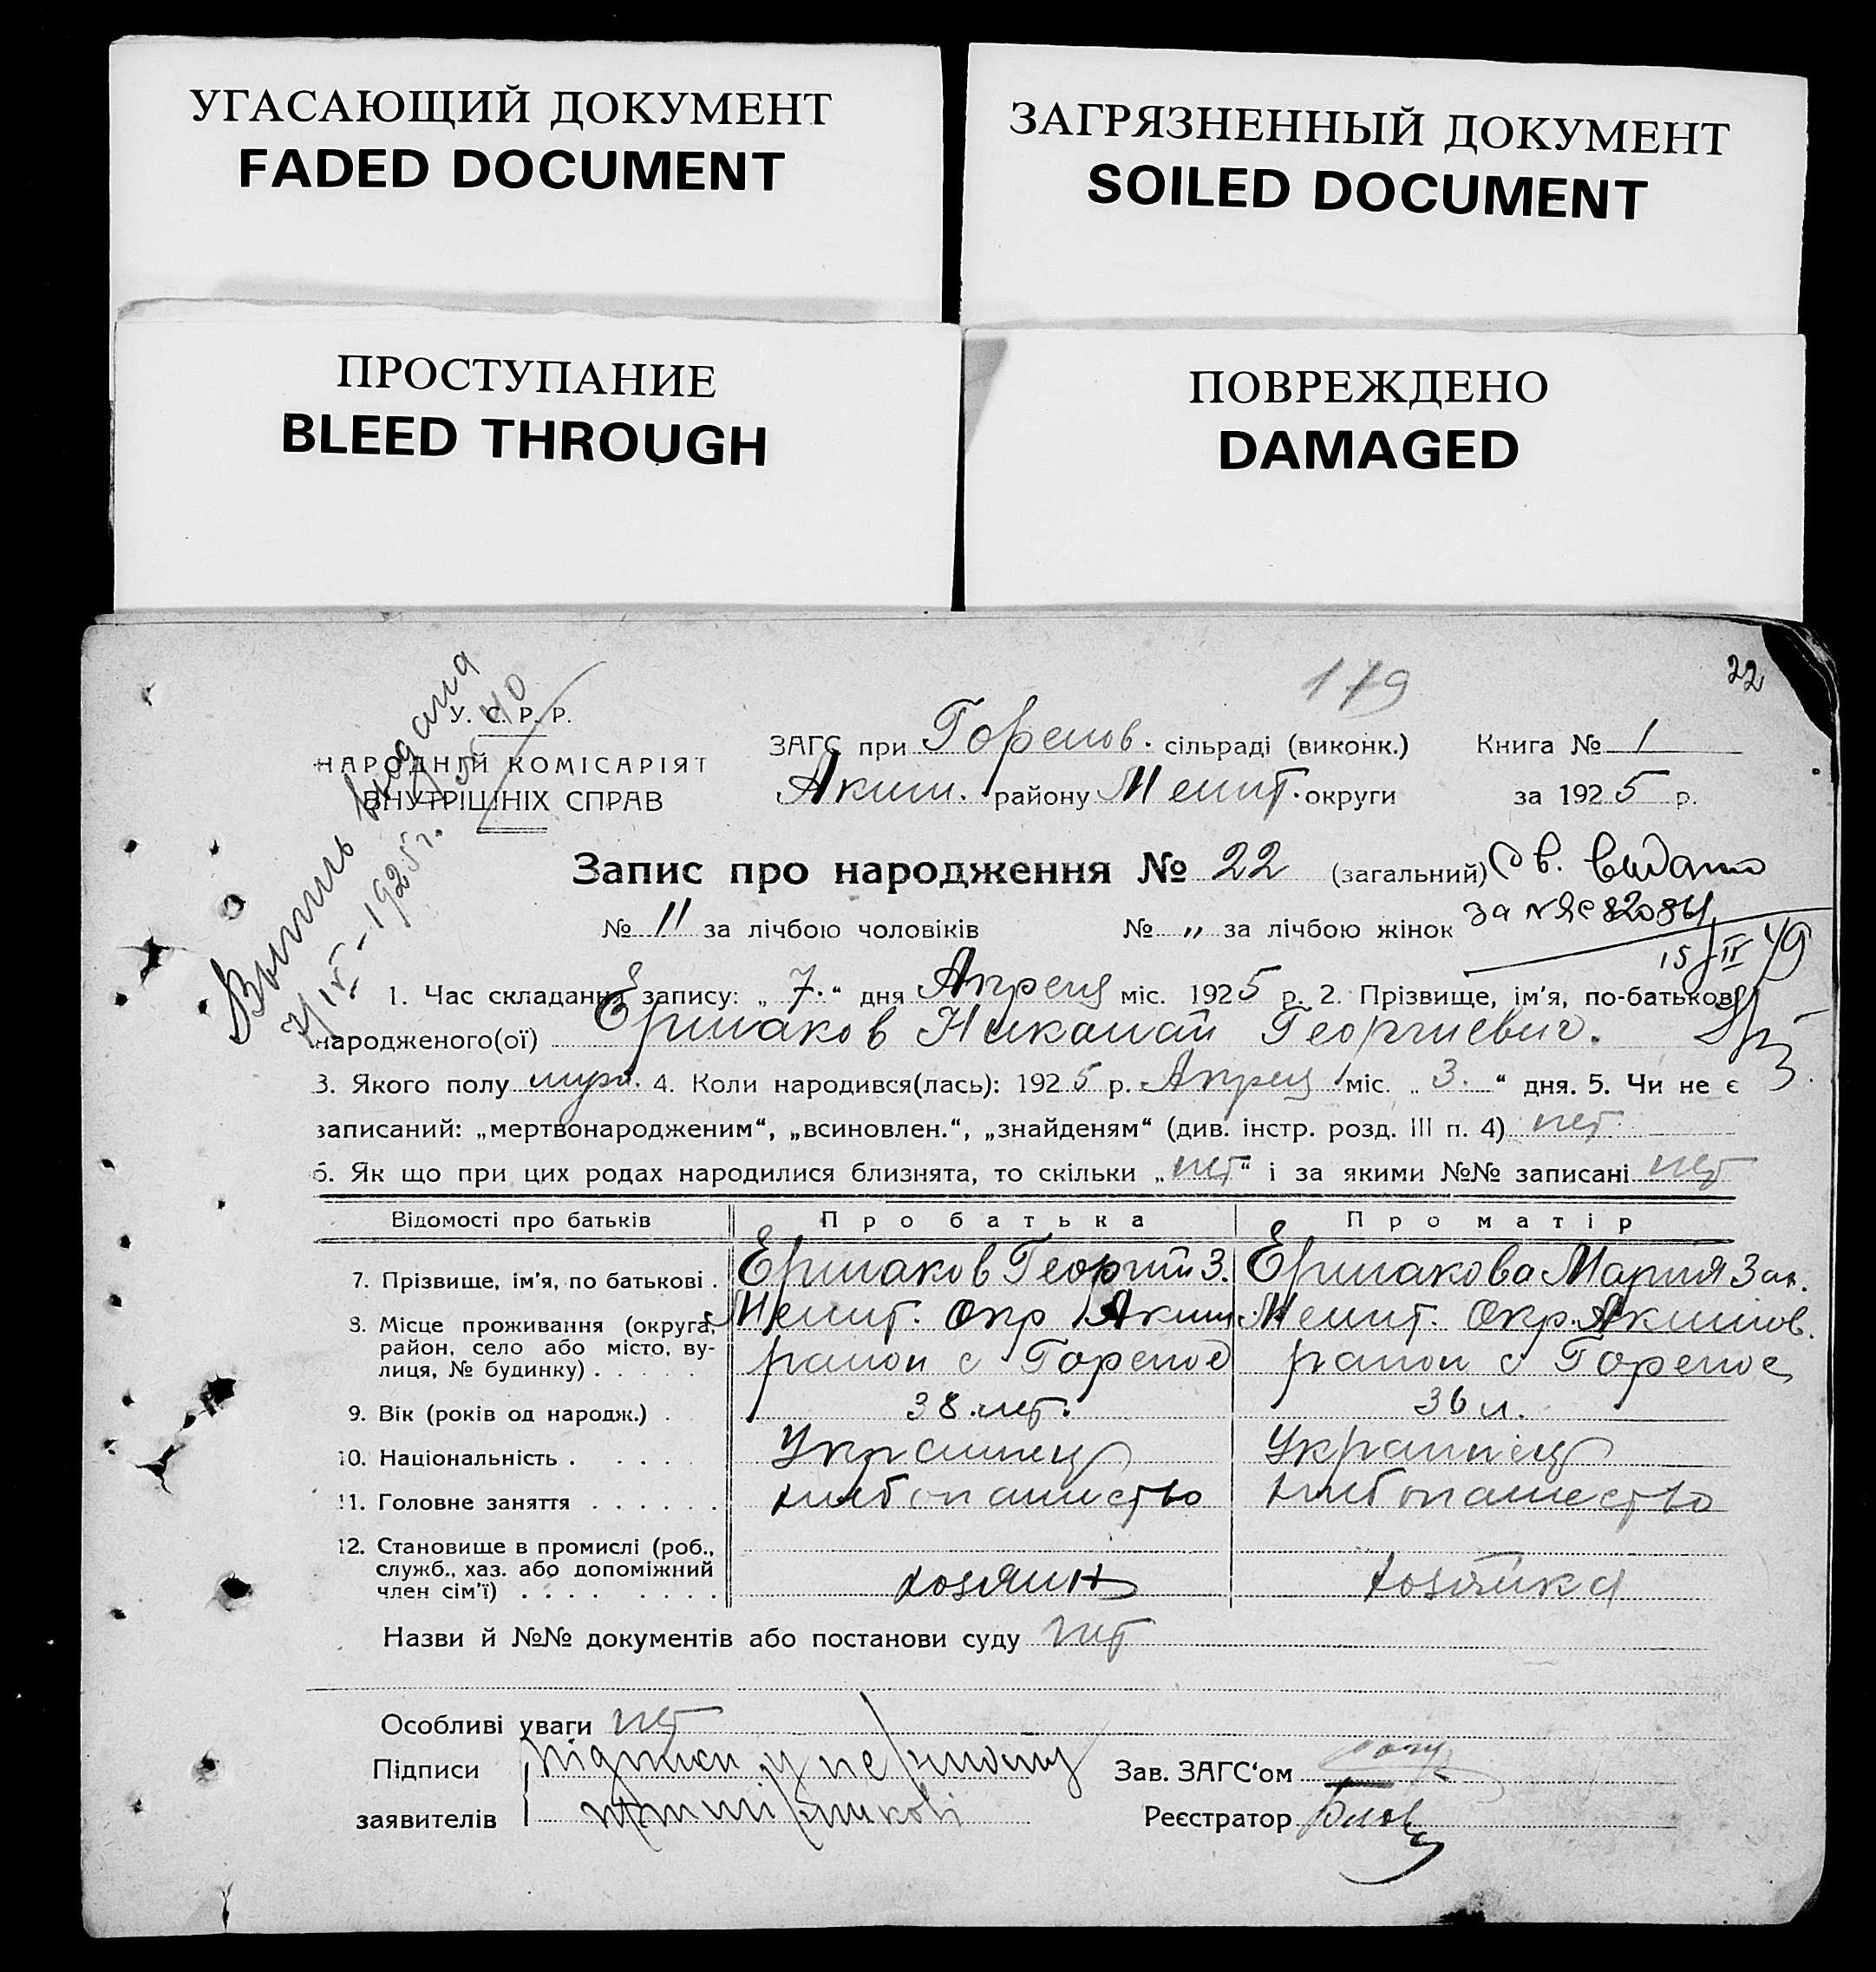 УГАСАЮЩИЙ ДОКУМЕНТ
FADED DOCUMENT
ЗАГРЯЗНЕННЫЙ ДОКУМЕНТ
SOILED DOCUMENT
ПРОСТУПАНИЕ
BLEED THROUGH
ПОВРЕЖДЕНО
DAMAGED
179
22
У. С. Р. Р.
НАРОДНІЙ КОМІСАРІЯТ
ВНУТРІШНІХ СПРАВ
Выпись выдана
7/IV-1925 г.
ЗАГС при Горелов. сільраді (виконк.) Книга № 1
Аким. району Мелит. округи за 1925 р.
Запис про народження № 22 (загальний) Св. видано
№ 11 за лічбою чоловіків № „ за лічбою жінок за №
15/II 49
1. Час складання запису: „ 7. “ дня Апреля міс. 1925 р. 2. Прізвище, ім'я, по-батькові
народженого(ої) Ермаков Николай Георгиевич.
3. Якого полу муж. 4. Коли народився(лась): 1925 р. Апреля міс. „ 3. “ дня. 5. Чи не є
записаний: „мертвонародженим“, „всиновлен.“, „знайденям“ (див. інстр. розд. III п. 4) нет
6. Як що при цих родах народилися близнята, то скільки „ нет “ і за якими №№ записані нет
Відомості про батьків Про батька Про матір
7. Прізвище, ім'я, по батькові . Ермаков Георгий З. Ермакова Мария Зах.
8. Місце проживання (округа, Мелит. Окр Аким Мелит. Окр. Акимов.
район, село або місто, ву-
лиця, № будинку) . . . . . район с Горелое район с Горелое
9. Вік (років од народж.) . 38 лет. 36 л.
10. Національність . . . . . Украинец Украинец
11. Головне заняття . . . . . . хлебопашество хлебопашество
12. Становище в промислі (роб.,
служб., хаз. або допоміжний
член сім'ї) . . . . . . . . хозяин хозяйка
Назви й №№ документів або постанови суду нет
Особливі уваги нет
Підписи Підписи у первому
заявителів
Зав. ЗАГС‘ом
Реєстратор